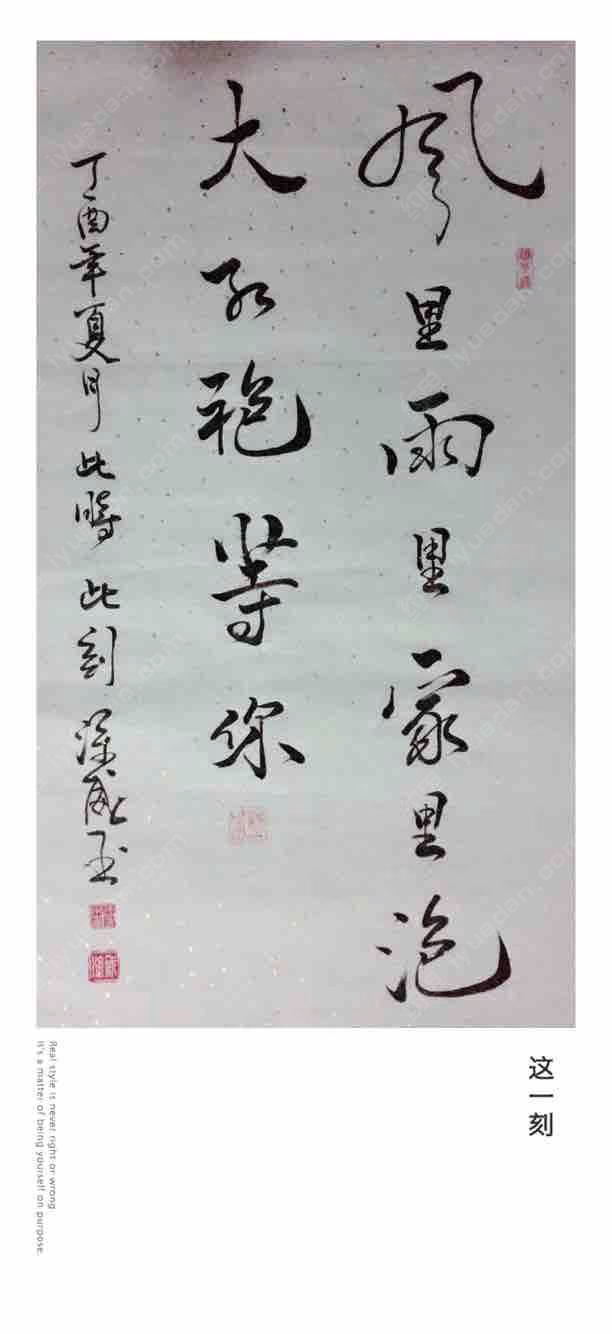 风里雨里家里泡
大红袍等你
丁酉年夏月此时此刻
这一刻
Real style is never right or wrong
It's a matter of being yourself on purpose.
lyuedan.com